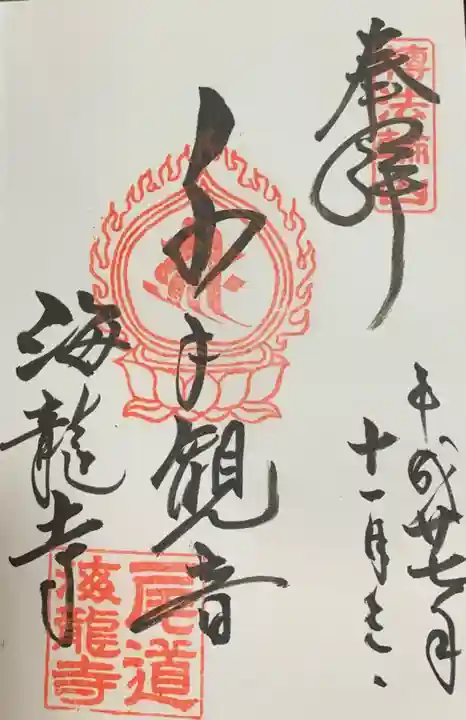 奉拝
轉法輪山
平成廿七年
十一月
千手観音
海龍寺
尾道
海龍寺